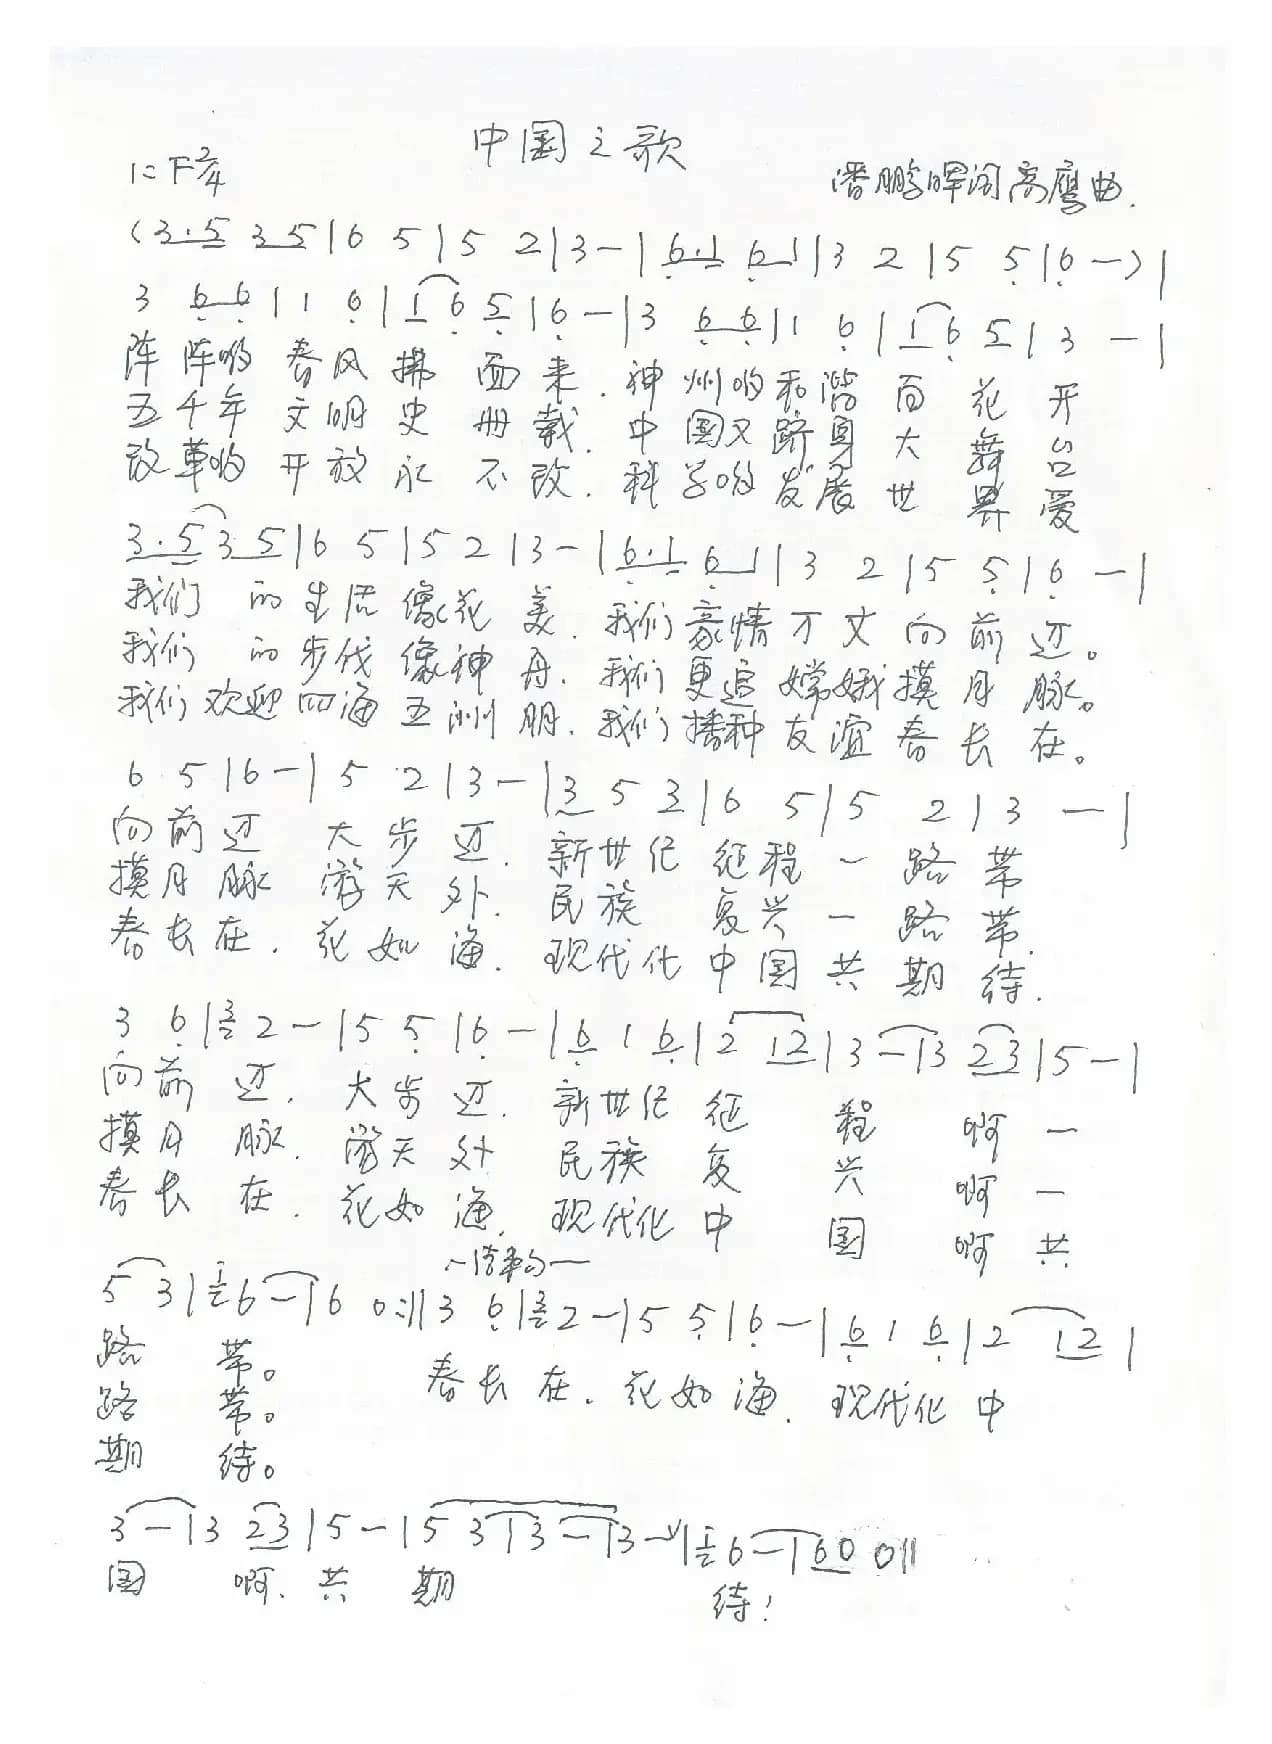 中国之歌
1=F 2/4
潘鹏晖词 高鹰曲.
(3·5 35|6 5|5 2|3-|6·1 61|3 2|5 5|6-)|
3 66|1 6|1 6 5|6-|3 66|1 6|1 6 5|3-|
阵阵哟春风拂面来.神州哟和谐百花开
五千年文明史册载.中国又跻身大舞台
改革哟开放永不改.科学哟发展世界爱
3·5 35|6 5|5 2|3-|6·1 61|3 2|5 5|6-|
我们的生活像花美.我们豪情万丈向前迈。
我们的步伐像神舟.我们更追嫦娥摸月脉。
我们欢迎四海五洲朋.我们播种友谊春长在。
6 5|6-|5 2|3-|3 5 3|6 5|5 2|3-|
向前迈 大步迈.新世纪征程一路带
摸月脉 游天外.民族复兴一路带.
春长在.花如海.现代化中国共期待.
3 6|3 2-|5 5|6-|6 1 6|2 12|3-|3 23|5-|
向前迈.大步迈.新世纪征程啊一
摸月脉.游天外 民族复兴啊一
春长在.花如海.现代化中国啊共
-结束句-
5 3|1 6-|6 0:||3 6|3 2-|5 5|6-|6 1 6|2 12|
路带。 春长在.花如海.现代化中
路带。
期待。
3-|3 23|5-|5 3|3-|3-|1 6-|60 0||
国啊.共期待!